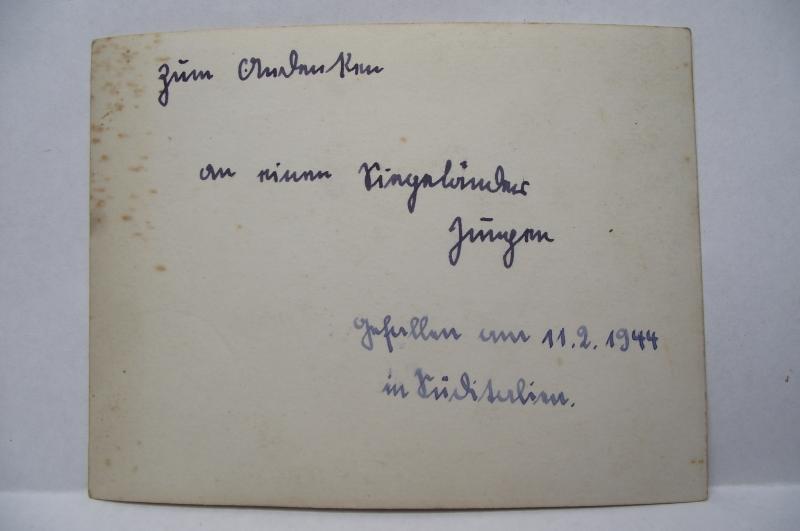 Zum Andenken
an einen Siegeländer
Jungen
Gefallen am 11.2.1944
in Süditalien.